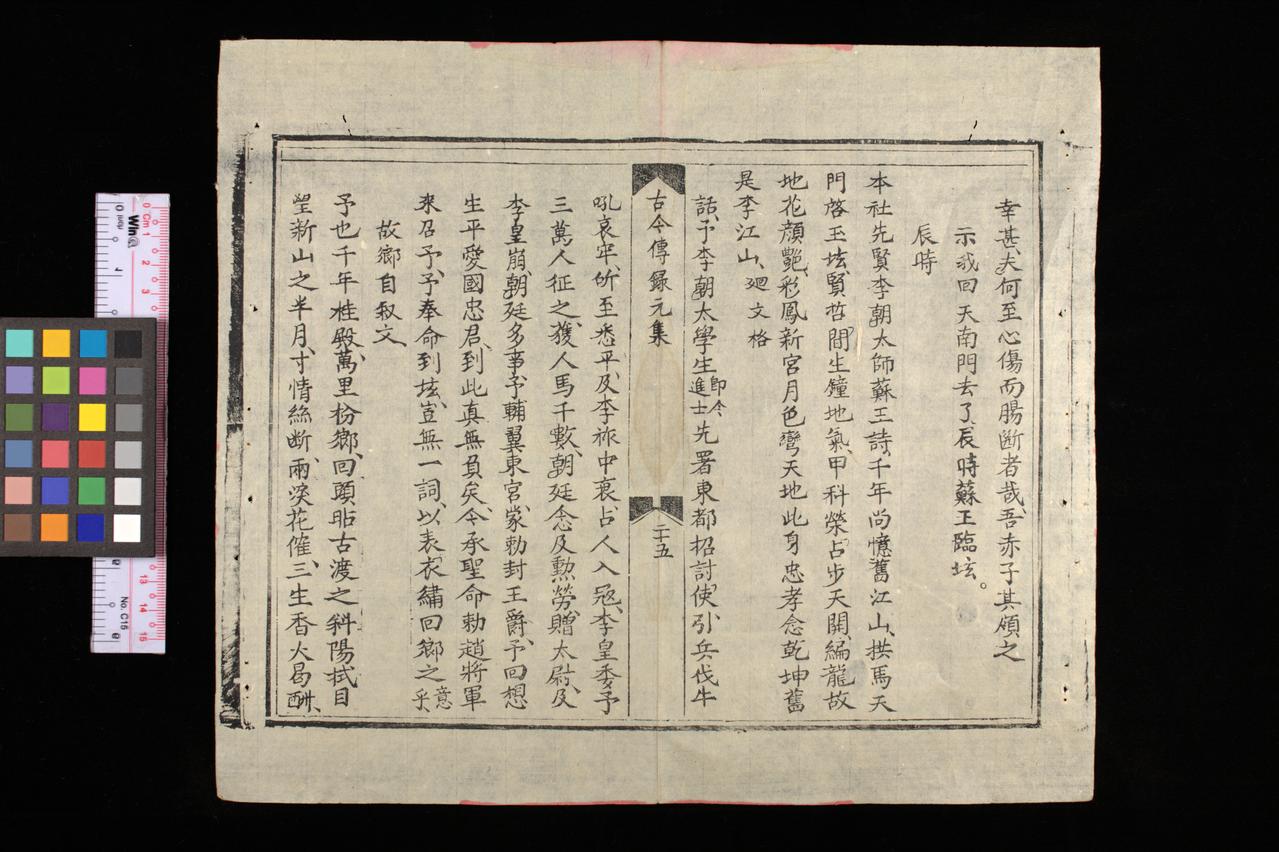 幸甚夫何至心傷而腸斷者哉、吾赤子其頋之
示我回天南門去了、辰時蘇王臨坛。
辰時
本社先賢李朝太師蘇王詩、千年尚憶舊江山、拱馬天
門啓玉坛、賢哲間生鐘地氣、甲科榮占步天開、編龍故
地花顔艷、彩鳳新宮月色彎、天地此身忠孝念、乾坤舊
是李江山、廻文格
話、予李朝太學生即今進士先署東都招討使、引兵伐牛
古今傳錄元集
二十五
吼哀牢、所至悉平、及李祚中衰、占人入寇、李皇委予
三萬人征之、獲人馬千數、朝廷念及勲勞、贈太尉、及
李皇崩、朝廷多事、予輔翼東宮、蒙勅封王爵、予回想
生平愛國忠君、到此真無負矣、今承聖命勅趙將軍
來召予、予奉命到坛、豈無一詞、以表衣繡回鄉之意乎、
故鄉自叙文、
予也千年桂殿、萬里枌鄉、回頭貼古渡之斜陽、拭目
望新山之半月、寸情絲断、兩淚花催、三生香火曷酬、
Win
0 Cm 1
2
3
13
14
15
No. C15